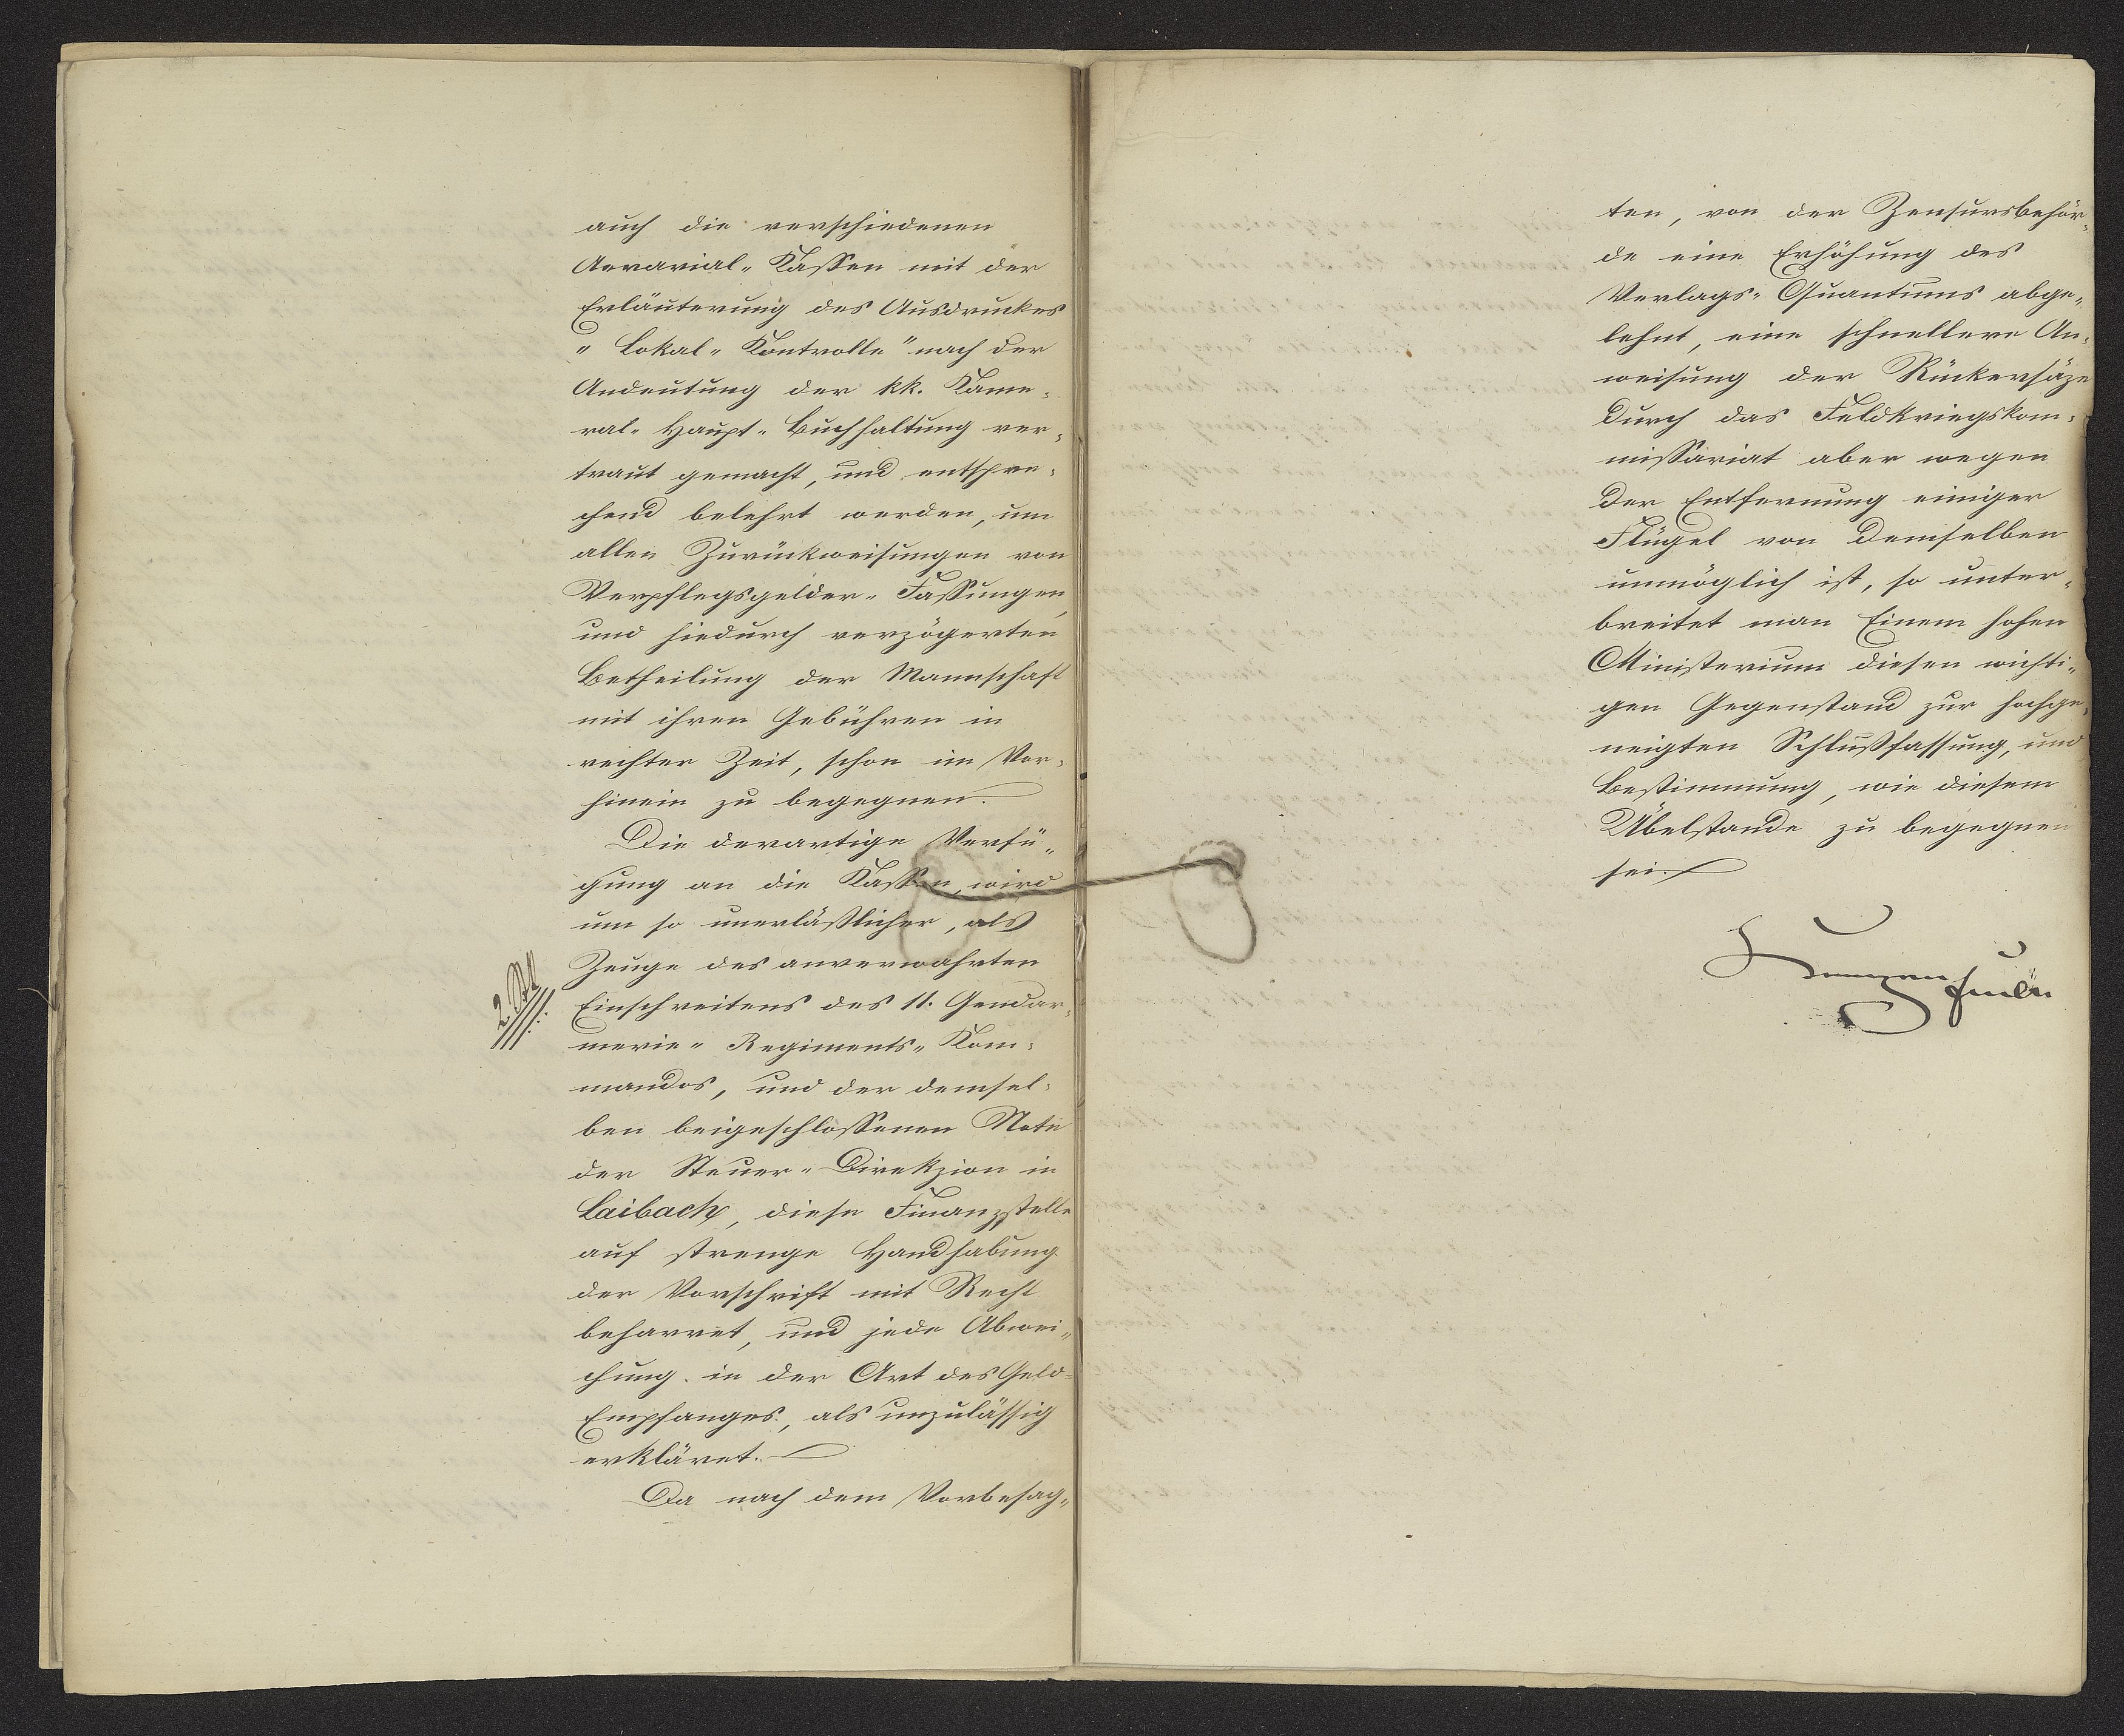 auch die verschiedenen
Aerarial-Kassen mit der
Erläuterung des Ausdruckes
"Lokal-Kontrolle" nach der
Andeutung der kk. Kame-
ral-Haupt-Buchhaltung ver-
traut gemacht, und entspre-
chend belehrt werden, um
allen Zurückweisungen von
Verpflegsgelder-Fassungen,
und hiedurch verzögerten
Betheilung der Mannschaft
mit ihren Gebühren in
rechter Zeit, schon im Vor-
hinein zu begegnen.
Die derartige Verfü-
gung an die Kassen, wird
um so unerläßlicher, als
Zeuge des anverwahrten
2
Einschreitens des 11. Gendar-
merie-Regiments-Kom-
mandos, und der demsel-
ben beigeschlossenen Note
der Steuer-Direkzion in
Laibach, diese Finanzstelle
auf strenge Handhabung
der Vorschrift mit Recht
beharret, und jede Abwei-
chung in der Art des Geld-
Empfanges, als unzulässig
erkläret.
Da nach dem Vorbesag-
ten, von der Zensursbehör-
de eine Erhöhung des
Verlags-Quantums abge-
lehnt, eine schnellere An-
weisung der Rückersäze
durch das Feldkriegskom-
missariat aber wegen
der Entfernung einiger
Flügel von demselben
unmöglich ist, so unter-
breitet man Einem hohen
Ministerium diesen wichti-
gen Gegenstand zur hochge-
neigten Schlußfassung, und
Bestimmung, wie diesem
Übelstande zu begegnen
sei.